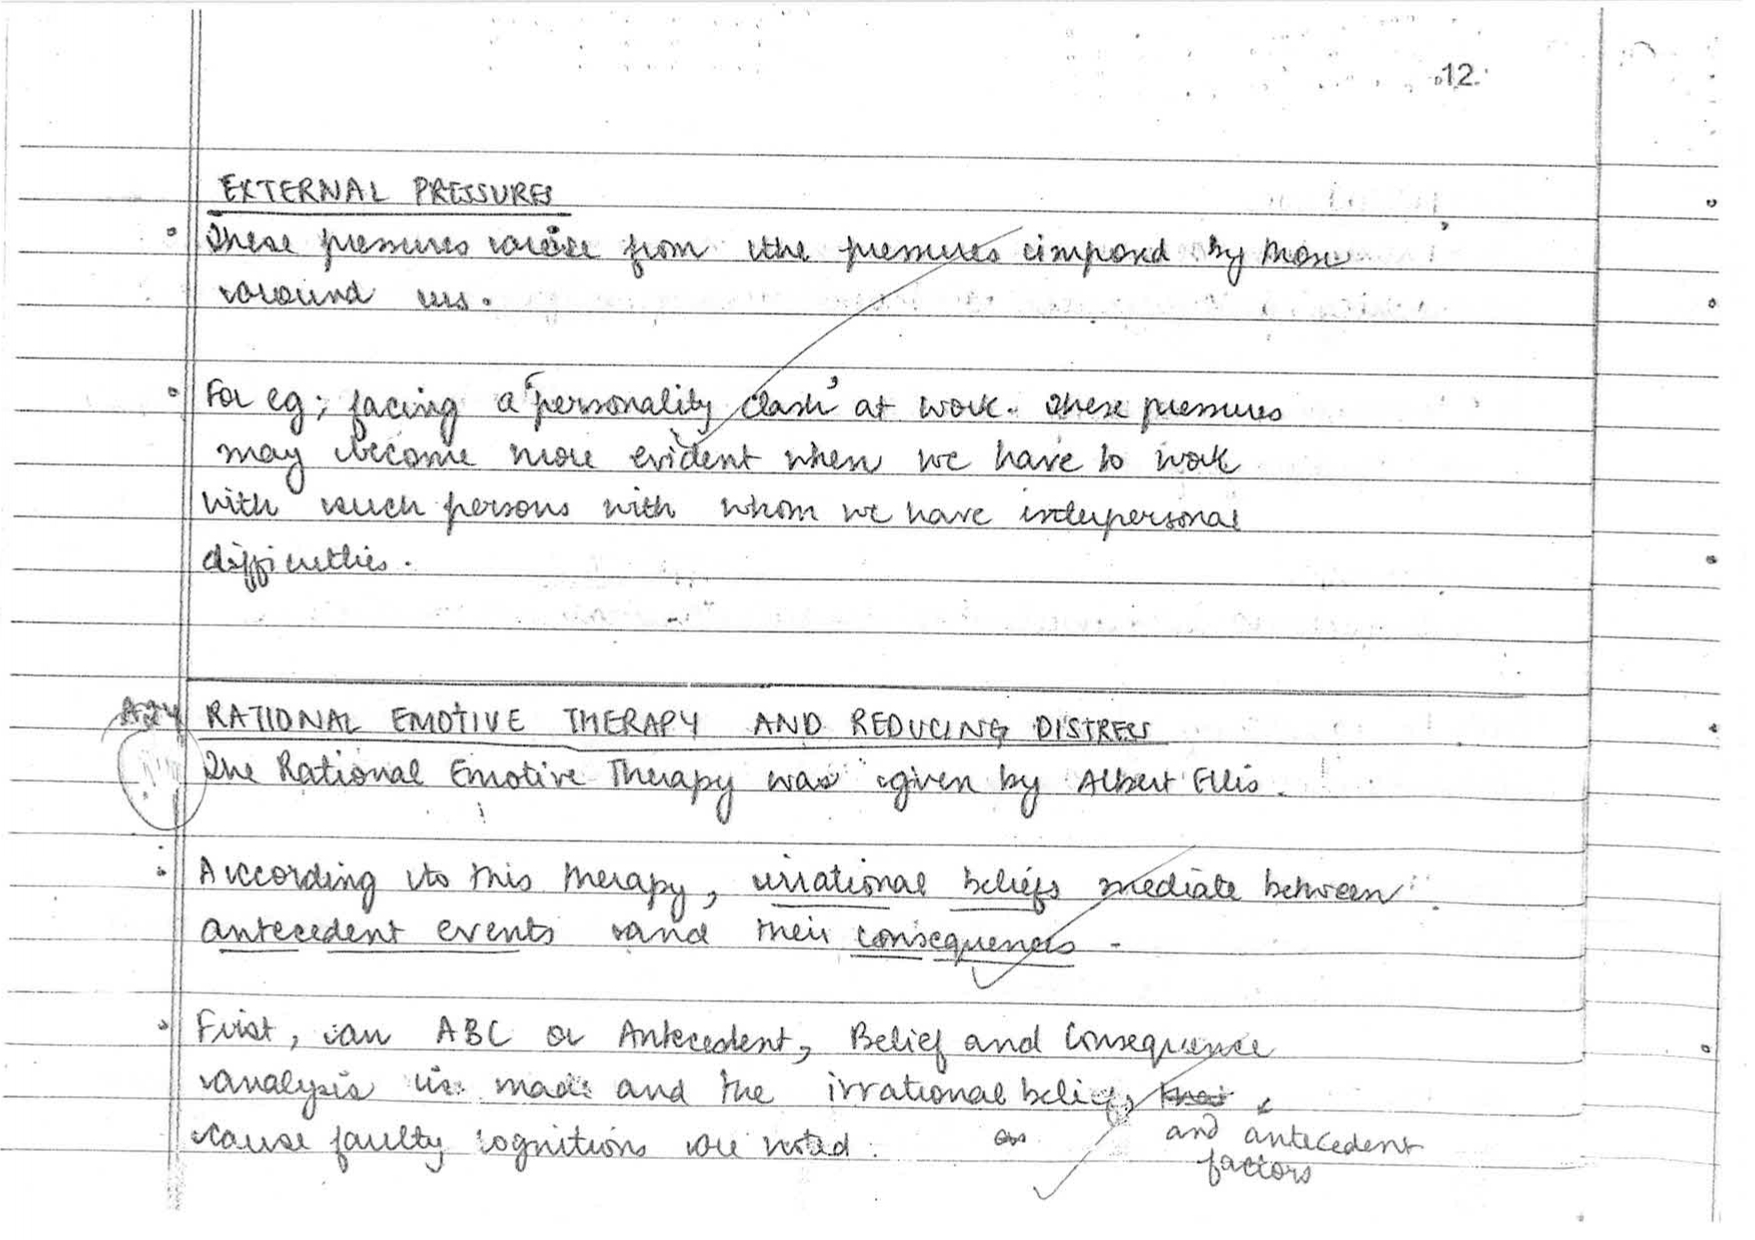 12.
EXTERNAL PRESSURES
These pressures arise from the pressures imposed by those
around us.
For eg; facing a 'personality clash' at work. These pressures
may become more evident when we have to work
with such persons with whom we have interpersonal
difficulties.
A24 RATIONAL EMOTIVE THERAPY AND REDUCING DISTRESS
The Rational Emotive Therapy was given by Albert Ellis.
According to this therapy, irrational beliefs mediate between
antecedent events and their consequences.
First, an ABC or Antecedent, Belief and Consequence
analysis is made and the irrational beliefs that
cause faulty cognitions are noted. and antecedent
factors